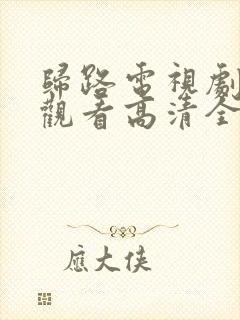 歸路電視劇
觀看高清全
應大俠